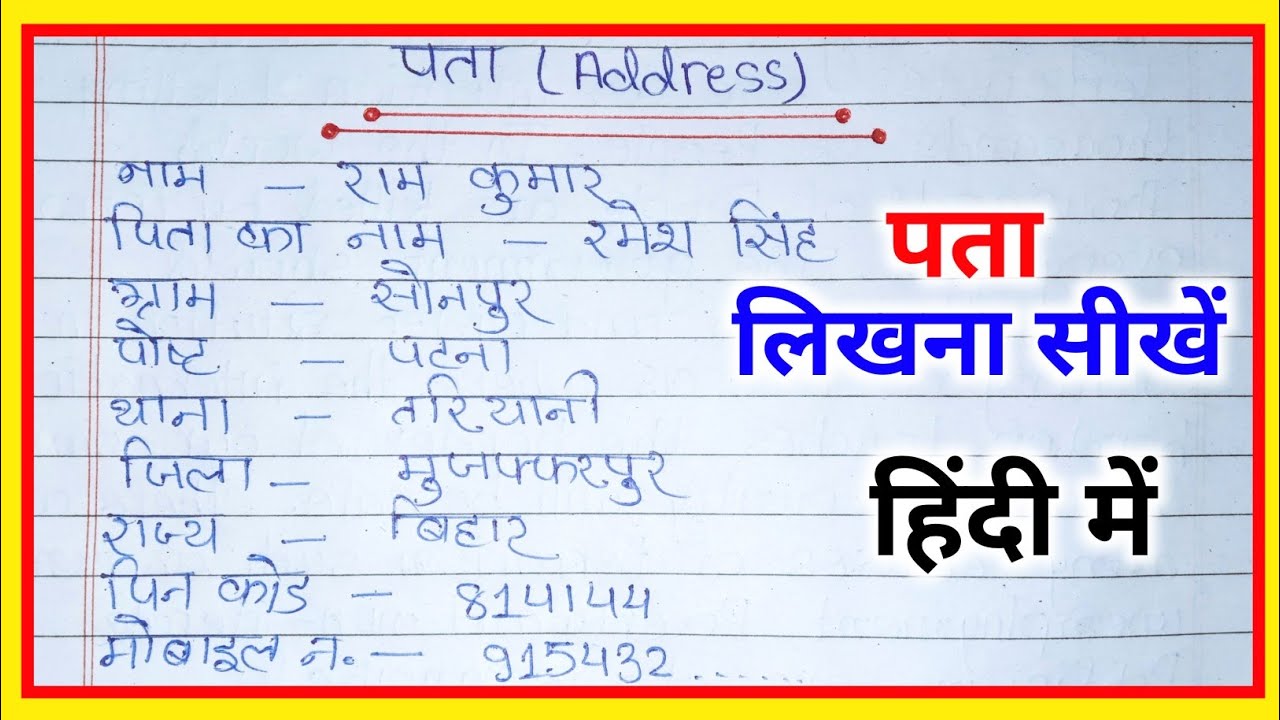 पता (Address)
नाम – राम कुमार
पिता का नाम – रमेश सिंह
ग्राम – सोनपुर
पोष्ट – पटना
थाना – तरियानी
जिला – मुजफ्फरपुर
राज्य – बिहार
पिन कोड – 814144
मोबाइल न. – 915432.......
पता
लिखना सीखें
हिंदी में